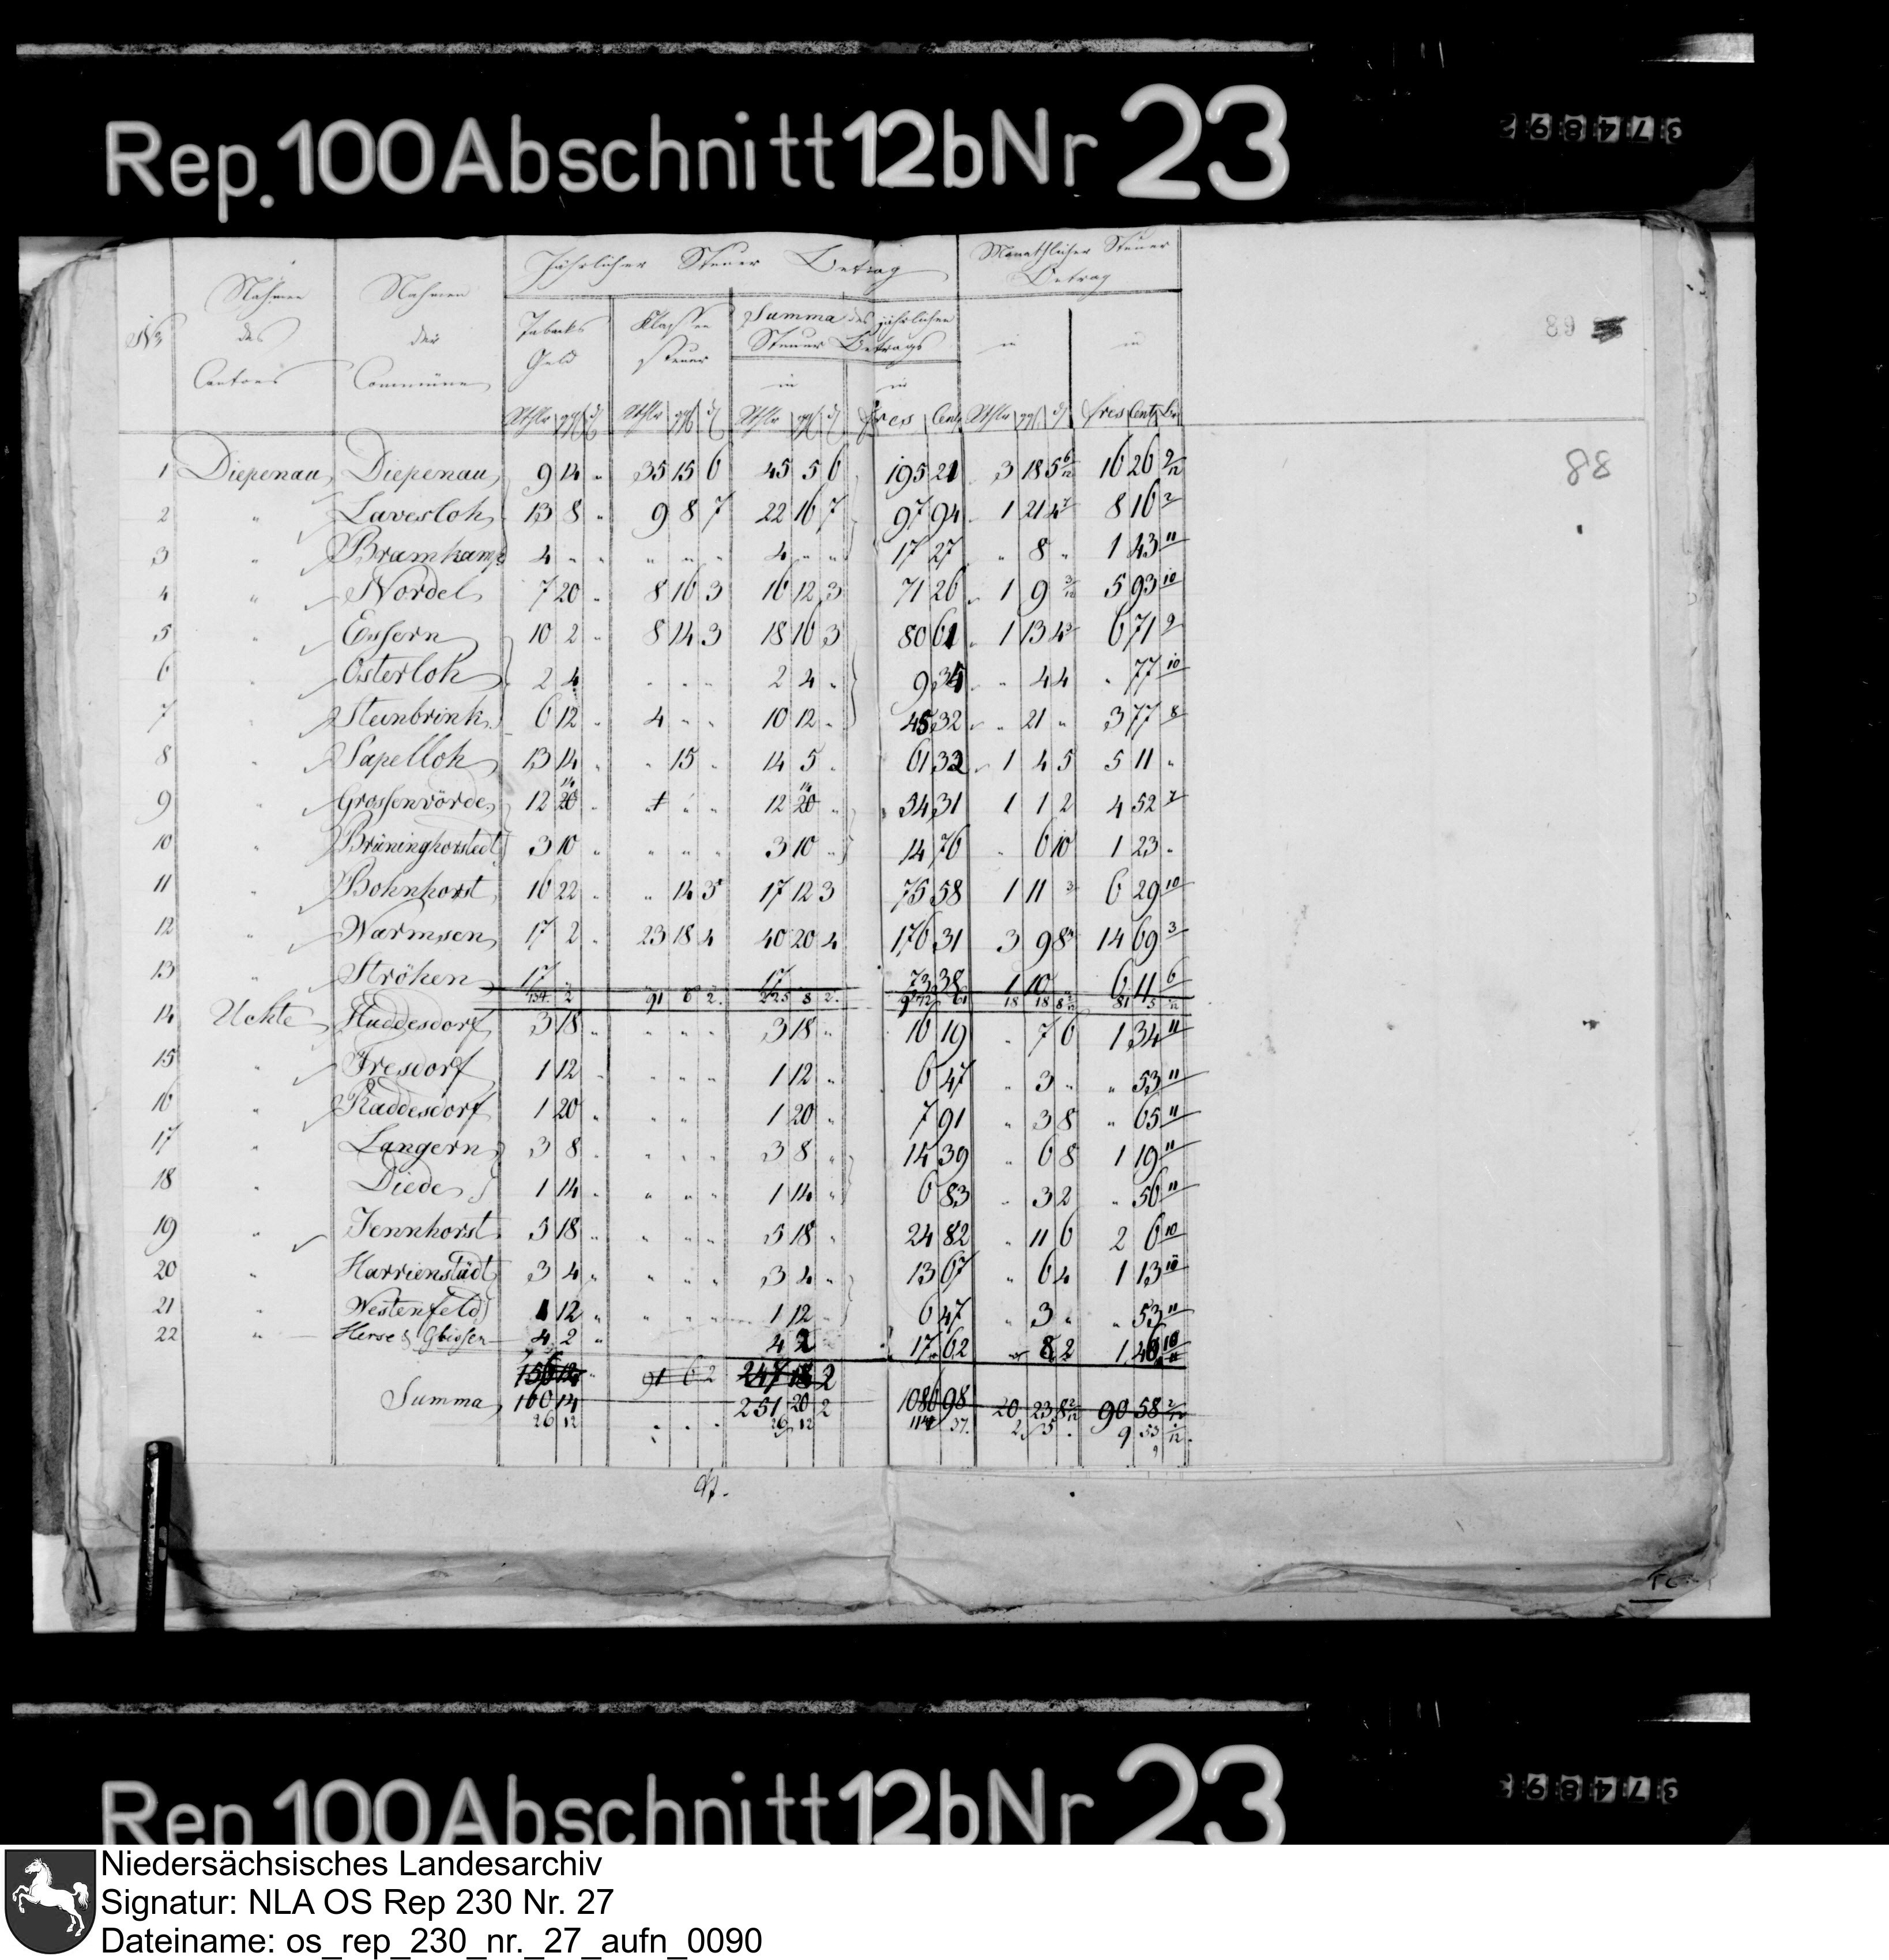 Rep. 100 Abschnitt 12b Nr 23
37489
Jährlicher Steuer Betrag Monathlicher Steuer Betrag
No Nahmen des Cantons Nahmen der Commüne Tabacks Geld Klassen Steuer Summa des jährlichen Steuer Betrags in in
in in
Rthlr ggl d Rthlr ggl d Rthlr ggl d Frcs Cent Rthlr ggl d frcs Cent
89
88
1 Diepenau Diepenau 9 14 " 35 15 6 45 5 6 195 21 3 18 5 6/12 16 26 9/12
2 " Lavesloh 13 8 " 9 8 7 22 16 7 97 94 1 21 4 7 8 16 2
3 " Bramkamp 4 " " " " " 4 " " 17 27 " 8 " 1 43 11
4 " Nordel 7 20 " 8 16 3 16 12 3 71 26 1 9 3/12 5 93 10
5 " Essern 10 2 " 8 14 3 18 16 3 80 61 1 13 4 3 6 71 9
6 " Osterloh 2 4 " " " 2 4 " 9 34 " 4 4 " 77 10
7 " Steinbrink 6 12 " 4 " " 10 12 " 45 32 " 21 " 3 77 8
8 " Sapelloh 13 14 " " 15 " 14 5 " 61 32 1 4 5 5 11 "
9 " Grossenvörde 12 20 14 " " " 12 20 14 " 54 31 1 1 2 4 52 7
10 " Brüninghorstedt 3 10 " " " " 3 10 " 14 76 " 6 10 1 23 "
11 " Bohnhorst 16 22 " " 14 3 17 12 3 75 58 1 11 3 6 29 10
12 " Warmsen 17 2 " 23 18 4 40 20 4 176 31 3 9 8 4 14 69 3
13 " Ströhen 17 " 17 " 73 38 1 10 6 11 6
134 2 91 6 2 225 8 2 972 61 18 18 8 2/12 81 5
14 Uchte Huddesdorf 3 18 " " " " 3 18 " 16 19 " 7 6 1 34 11
15 " Fresdorf 1 12 " " " " 1 12 " 6 47 " 3 " " 53 11
16 " Raddesdorf 1 20 " " " 1 20 " 7 91 " 3 8 " 65 11
17 " Langern 3 8 " " " " 3 8 " 14 39 " 6 8 1 19 11
18 " Diede 1 14 " " " " 1 14 " 6 83 " 3 2 " 56 11
19 " Jennhorst 5 18 " " " " 5 18 " 24 82 " 11 6 2 6 10
20 " Harrienstädt 3 4 " " " " 3 4 " 13 67 " 6 4 1 13 10
21 " Westenfeld 1 12 " " " " 1 12 " 6 47 " 3 " " 53 11
22 " Herse & Gloissen 4 2 " 4 2 17 62 " 8 2 1 46 10
156 12 " 91 6 2 247 18 2
Summa 160 14 251 20 2 1086 98 20 23 8 2/12 90 58 2/12
26 12 " " " 26 12 114 37. 2 5 . 9 53
Rep 100 Abschnitt 12b Nr 23
37489
Niedersächsisches Landesarchiv
Signatur: NLA OS Rep 230 Nr. 27
Dateiname: os_rep_230_nr._27_aufn_0090